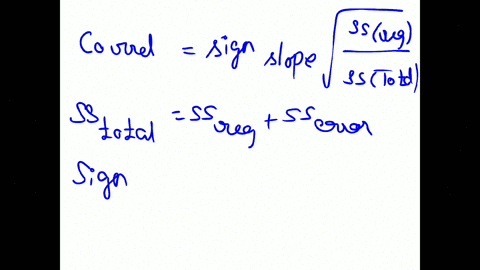 Correl = sign slope √ SS(reg) / SS(Total)
SS total = SS reg + SS error
Sign